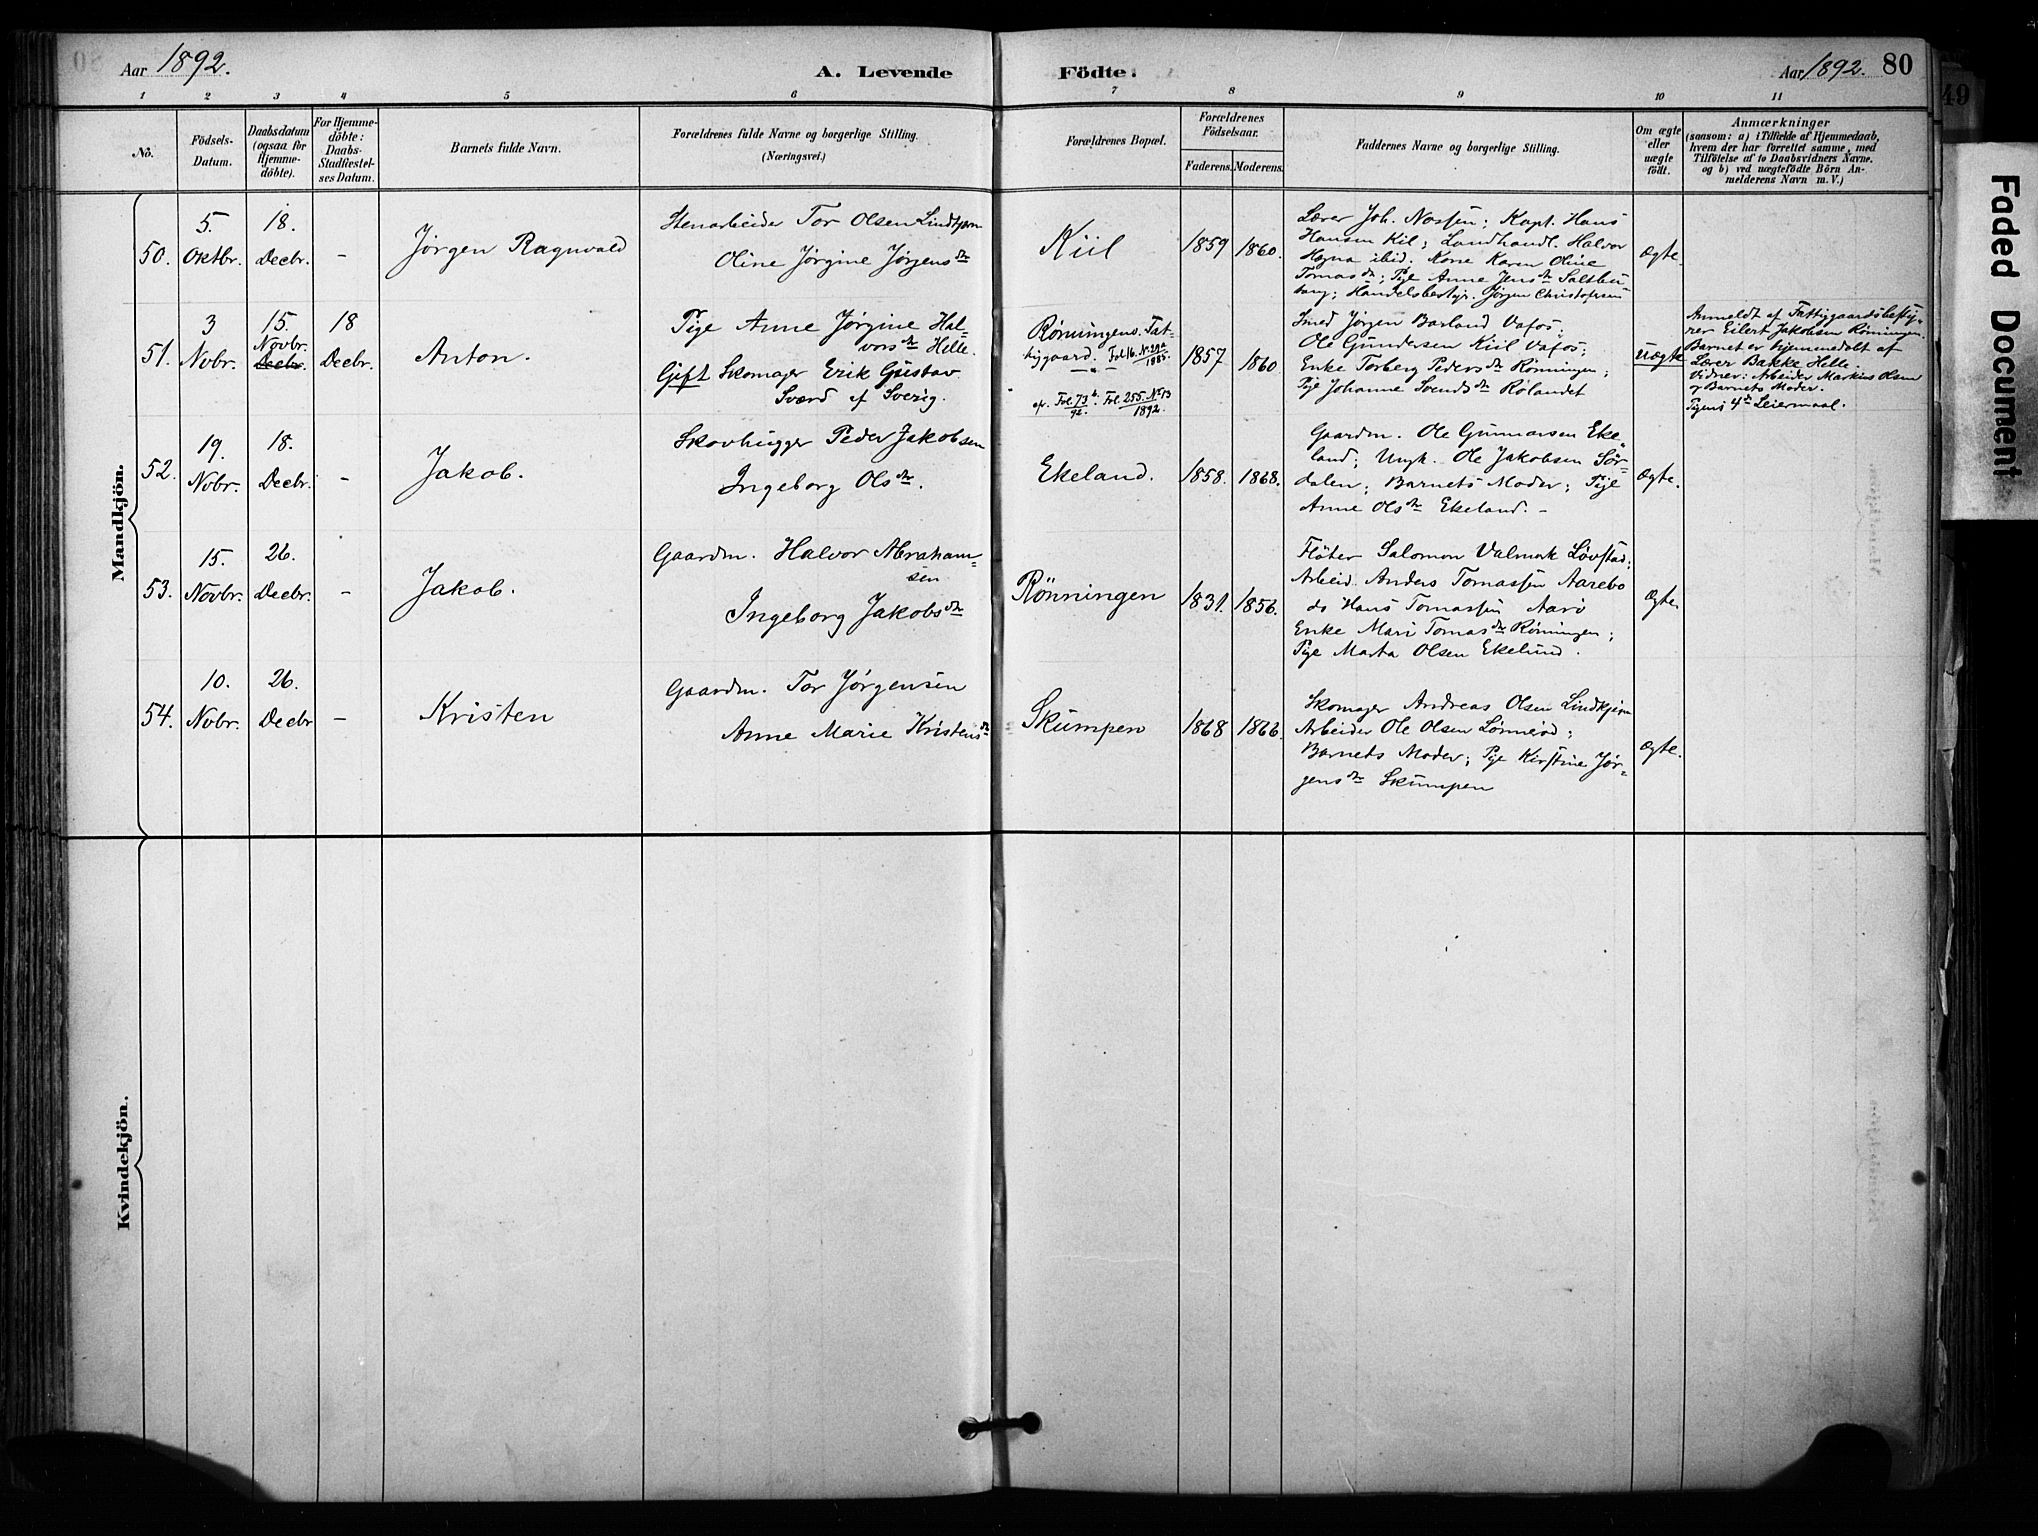 Aar 1892.
A. Levende Födte.
Aar 1892. 80
49
1 2 3 4 5 6 7 8 9 10 11
No.
Födsels-Datum.
Daabsdatum (ogsaa for Hjemme-döbte).
For Hjemme-döbte: Daabs-Stadfæstel-ses Datum.
Barnets fulde Navn.
Forældrenes fulde Navne og borgerlige Stilling.
(Næringsvei.)
Forældrenes Bopæl.
Forældrenes Födselsaar.
Faderens. Moderens.
Faddernes Navne og borgerlige Stilling.
Om ægte eller uægte födt.
Anmærkninger
(saasom: a) i Tilfælde af Hjemmedaab,
hvem der har forrettet samme, med
Tilföielse af to Daabsvidners Navne.
og b) ved uægtefödte Börn An-
melderens Navn m. V.)
Mandkjön.
50.
5. Oktbr.
18. Decbr.
-
Jørgen Ragnvald
Stenarbeider Tor Olsen Lindtjern
Oline Jørgine Jørgensdtr
Kiil
1859
1860.
Lærer Joh. Nossen; Kapt. Hans
Hansen Kil; Landhandl. Halvor
Hegna ibid. Kone Karen Oline
Tomasdtr; Pige Anne Jensdtr Saltbu-
tang; Handelsbestyr. Jørgen Christofersen
Ægte.
51.
3 Novbr.
15. Novbr. Decbr.
18 Decbr.
Anton.
Pige Anne Jørgine Hal-
vorsdtr Helle.
Gift Skomager Erik Gustav
Sværd af Sverig.
Rønningens Fat-
tiggaard. Fol. 16. N. 29. 1885.
cfr. Fol. 73 92. Fol. 255. No 13 1892.
1857
1860
Smed Jørgen Barland Vafos;
Ole Gundersen Kiil Vafos;
Enke Torberg Pedersdtr Rønningen;
Pige Johanne Svendsdtr Rølandet
Uægte
Anmeldt af Fattiggaardsbesty-
rer Eilert Jakobsen Rønningen.
Barnet er hjemmedøbt af
Lærer Bakke Helle.
Vidner: Arbeider Markus Olsen
og Barnets Moder.
Pigens 4de Leiermaal.
52.
19. Novbr.
18. Decbr.
-
Jakob.
Skovhugger Peder Jakobsen
Ingeborg Olsdtr.
Ekeland.
1858.
1868.
Gaardm. Ole Gunnarsen Eke-
land; Ungk. Ole Jakobsen Sør-
dalen; Barnets Moder; Pige
Anne Olsdtr Ekeland. -
Ægte.
53.
15. Novbr.
26. Decbr.
-
Jakob.
Gaardm. Halvor Abraham-
sen
Ingeborg Jakobsdtr
Rønningen
1831.
1856.
Fløter Salomon Valmork Løvstad;
Arbeid. Anders Tomassen Aarebo
do Hans Tomassen Aarø
Enke Mari Tomasdtr Rønningen;
Pige Marta Olsen Ekelund.
Ægte.
54.
10. Novbr.
26. Decbr
-
Kristen
Gaardm. Tor Jørgensen
Anne Marie Kristensdtr
Skumpen
1868
1866.
Skomager Andreas Olsen Lindtjern
Arbeider Ole Olsen Lønnerød;
Barnets Moder; Pige Kirstine Jør-
gensdtr Skumpen
Ægte.
Kvindekjön.
Faded Document